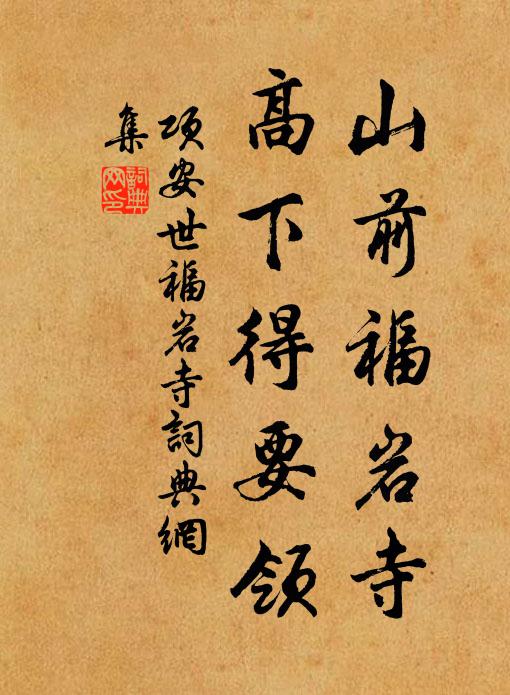 山前福岩寺
高下得要领
项安世福岩寺詞典網
集
詞典
网印